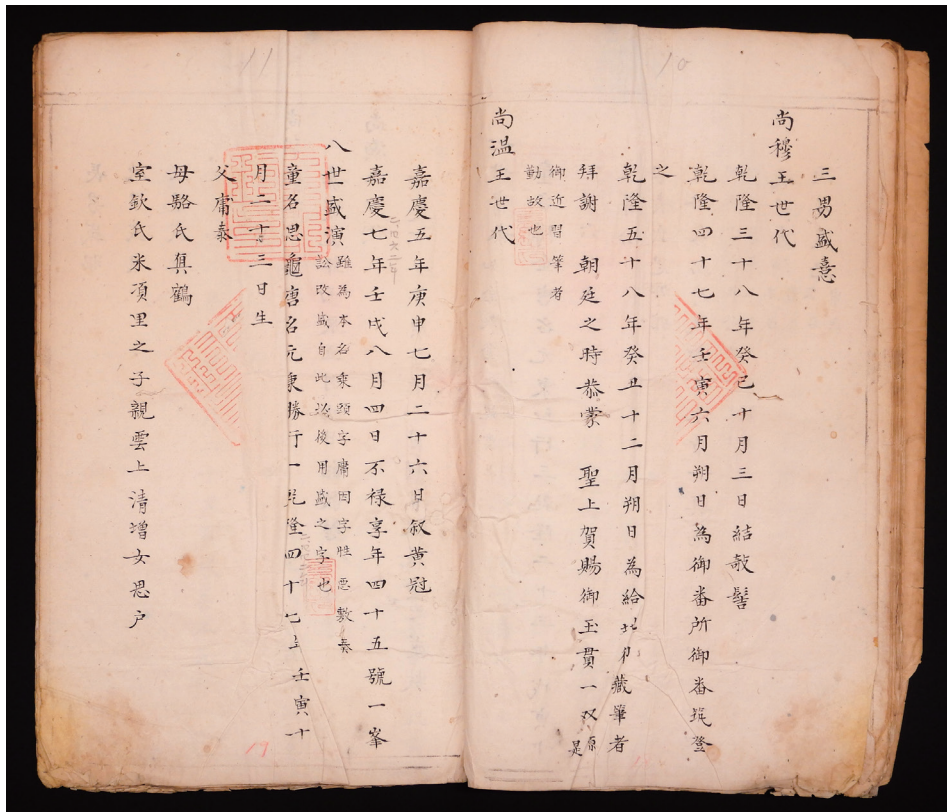 10
三男盛憙
尚穆王世代
乾隆三十八年癸巳十月三日結敧髻
乾隆四十七年壬寅六月朔日為御番所御番筑登
之
乾隆五十八年癸丑十二月朔日為給地 藏筆者
拜謝 朝廷之時恭蒙 聖上賀賜御玉貫一双原是
御近習筆者
勤故也
尚温王世代
11
嘉慶五年庚申七月二十六日叙黄冠
嘉慶七年壬戌八月四日不禄享年四十五號一峯
八世盛演雖為本名乘頭字庸因字 悪敷奏
改盛自此以後用盛之字也
童名思龜唐名元 勝行一乾隆四十七年壬寅十
月二十三日生
父庸泰
母駱氏真鶴
室欽氏米項里之子親雲上清增女思户